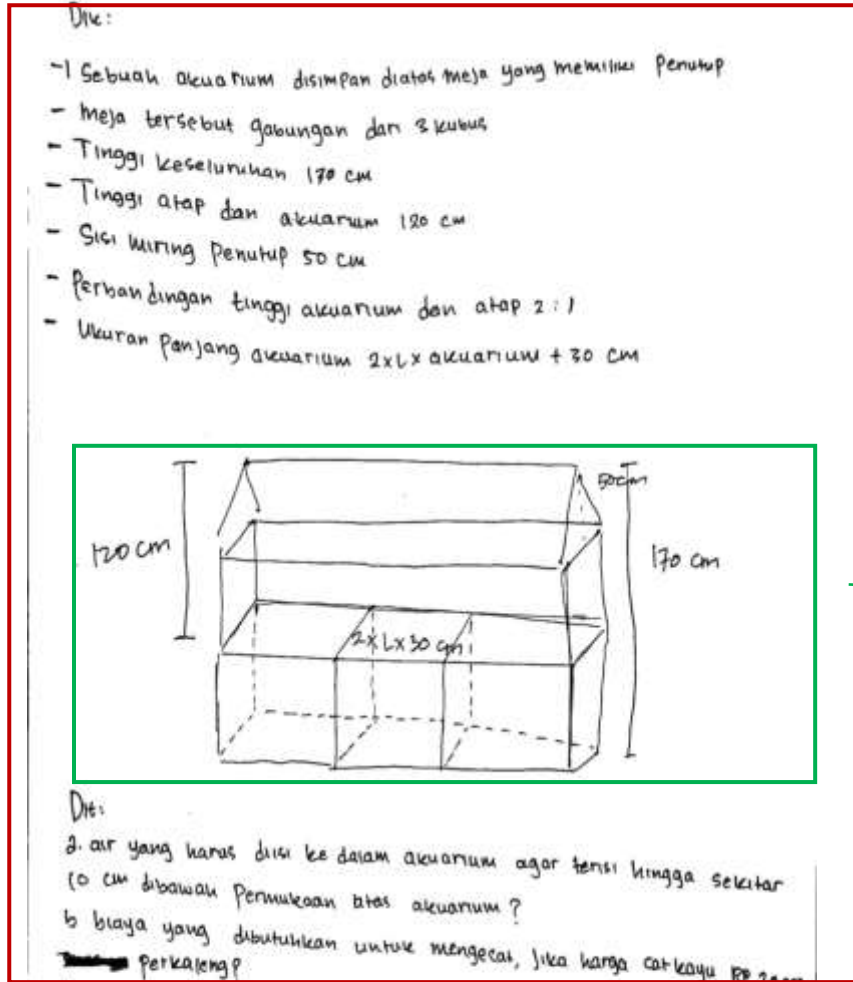 Dik:
-1 Sebuah akuarium disimpan diatas meja yang memiliki Penutup
- meja tersebut gabungan dari 3 kubus
- Tinggi keseluruhan 170 cm
- Tinggi atap dan akuarium 120 cm
- Sisi miring Penutup 50 cm
- Perbandingan tinggi akuarium dan atap 2:1
- Ukuran Panjang akuarium 2xLx akuarium + 30 cm
50cm
120 cm
170 cm
2xLx30 cm
Dit:
a. air yang harus diisi ke dalam akuarium agar terisi hingga sekitar
10 cm dibawah Permukaan atas akuarium?
b biaya yang dibutuhkan untuk mengecat, jika harga cat kayu RP
perkaleng?